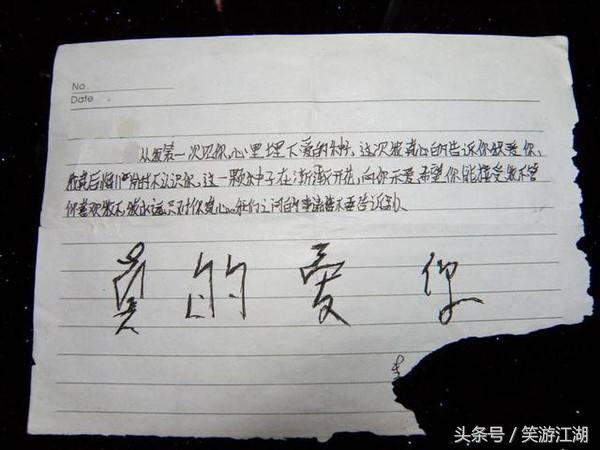 No.
Date
从我第一次见你,心里埋下爱的种子,这次我真心的告诉你我爱你,
我真后悔 不认识你,这一颗种子在渐渐开花,向你示爱希望你能接受我不管
你喜欢我不,我永远只对你真心。我们之间的事请不要告诉别人
真的爱你
头条号/笑游江湖